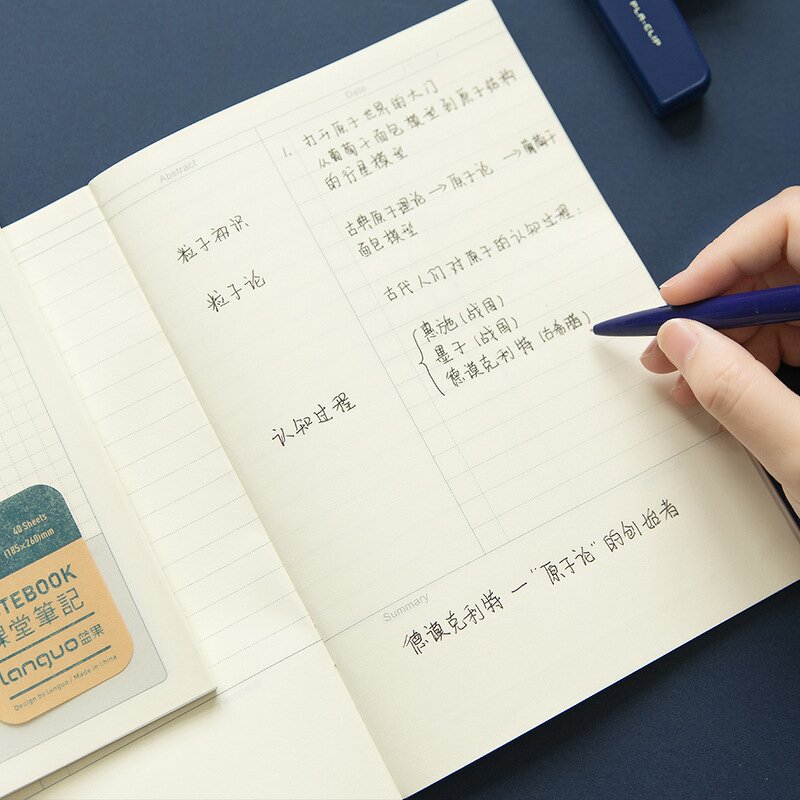 PLA-CLIP
Date
Abstract
1. 打开原子世界的大门
从葡萄干面包模型到原子结构
的行星模型
粒子初识
古典原子理论→原子论 →葡萄干
面包模型
粒子论
古代人们对原子的认知过程:
惠施(战国)
墨子(战国)
德谟克利特(古希腊)
认知过程
Summary
德谟克利特一"原子论"的创始者
40 Sheets
(185×260)mm
NOTEBOOK
課堂筆記
languo 蓝果
Design by languo / Made in china